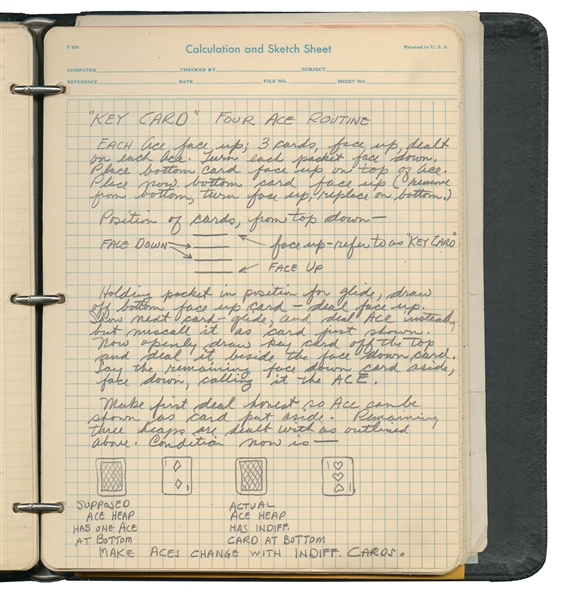 F 858
Calculation and Sketch Sheet
Printed in U. S. A.
COMPUTER CHECKED BY SUBJECT
REFERENCE DATE FILE NO. SHEET NO.
"KEY CARD" FOUR ACE ROUTINE
EACH Ace face up; 3 cards, face up, dealt
on each Ace. Turn each packet face down.
Place bottom card face up on top of Ace.
Place now bottom card face up (remove
from bottom, turn face up, replace on bottom.)
Position of cards, from top down—
FACE DOWN
face up-refer to as "KEY CARD"
FACE UP
Holding packet in position for glide, draw
off bottom face up card - deal face up.
For next card, glide, and deal ACE instead,
but miscall it as card just shown.
Now openly draw key card off the top
and deal it beside the face down card.
Lay the remaining face down card aside,
face down, calling it the ACE.
Make first deal honest so Ace can be
shown as card put aside. Remaining
three heaps are dealt with as outlined
above. Condition now is —
1 1
1 1
SUPPOSED
ACE HEAP
HAS ONE ACE
AT BOTTOM
ACTUAL
ACE HEAP
HAS INDIFF.
CARD AT BOTTOM
MAKE ACES CHANGE WITH INDIFF. CARDS.